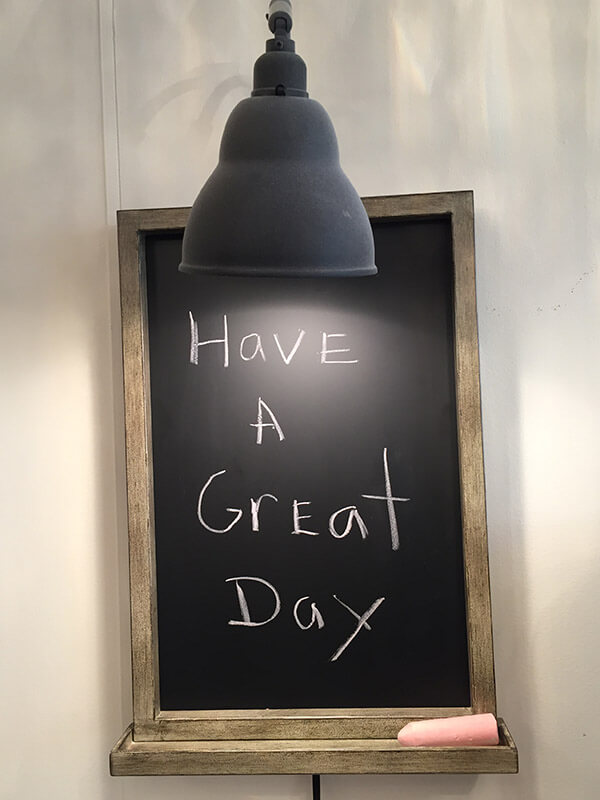 Have
A
Great
Day